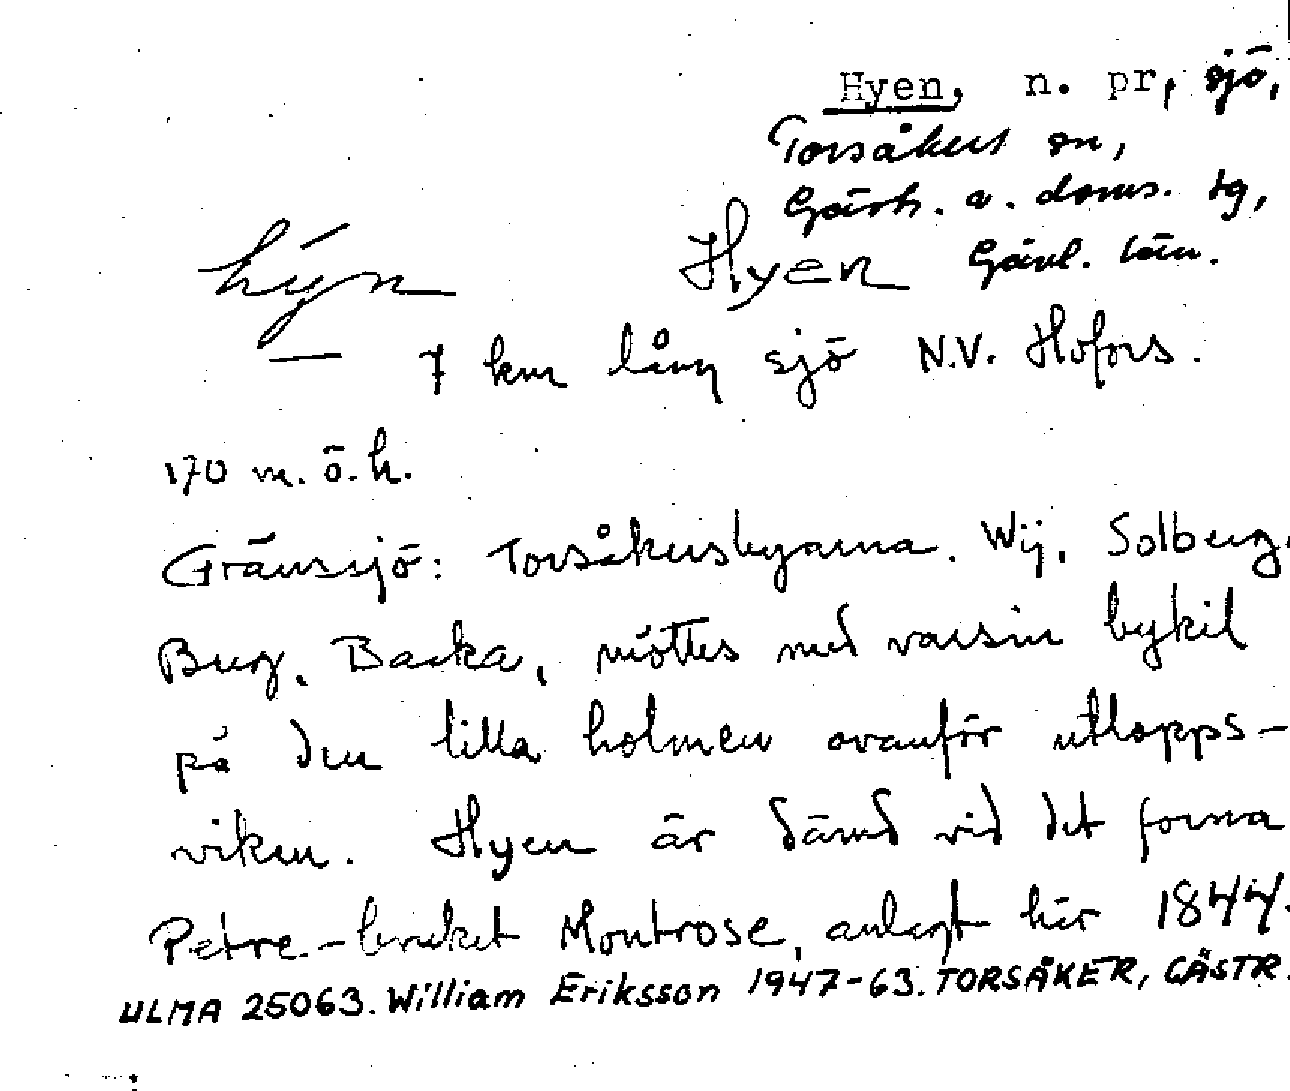 Hyen, n. pr, sjö,
Torsåkers sn,
Gästr. ö. doms. tg,
Gävl. län.
hýn Hyen
7 km lång sjö N.V. Hofors.
170 m. ö. h.
Gränssjö: Torsåkersbyarna. Wij, Solberg,
Berg, Backa, möttes med varsin bykil
på den lilla holmen ovanför utlopps-
viken. Hyen är dämd vid det forna
Petre-bruket Montrose, anlagt här 1844.
ULMA 25063. William Eriksson 1947-63. TORSÅKER, GÄSTR.